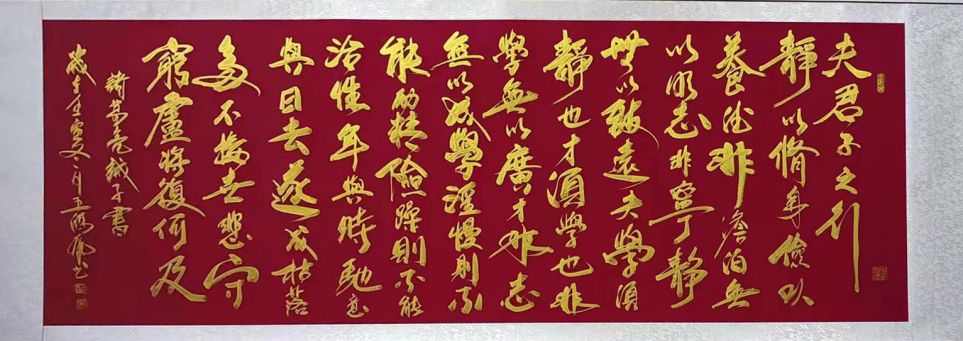 夫君子之行
靜以脩身儉以
養德非澹泊無
以明志非寧靜
無以致遠夫學須
靜也才須學也非
學無以廣才非志
無以成學淫慢則不
能勵精險躁則不能
冶性年與時馳意
與日去遂成枯落
多不接世悲守
窮廬將復何及
諸葛亮誡子書